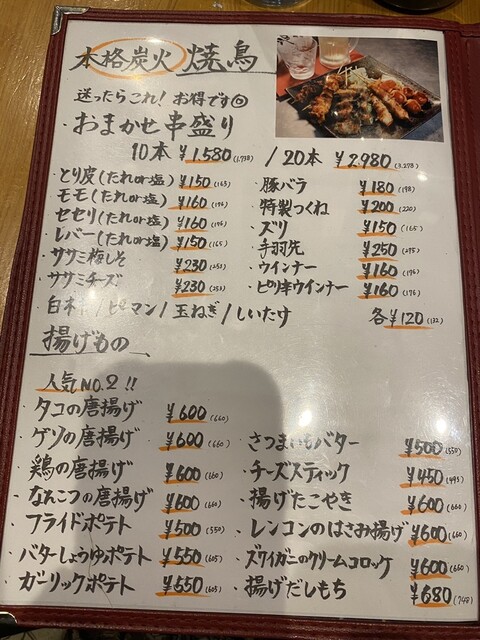 本格炭火 焼鳥
迷ったらこれ! お得です
・おまかせ串盛り
10本 ¥1.580(1.738) / 20本 ¥2.980(3.278)
・とり皮(たれor塩) ¥150(165)
・モモ(たれor塩) ¥160(176)
・セセリ(たれor塩) ¥160(176)
・レバー(たれor塩) ¥150(165)
・ササミ梅しそ ¥230(253)
・ササミチーズ ¥230(253)
・豚バラ ¥180(198)
・特製つくね ¥200(220)
・ズリ ¥150(165)
・手羽先 ¥250(275)
・ウインナー ¥160(176)
・ピリ辛ウインナー ¥160(176)
・白ネギ/ピーマン/玉ねぎ/しいたけ 各¥120(132)
揚げもの
人気NO.2!!
・タコの唐揚げ ¥600(660)
・ゲソの唐揚げ ¥600(660)
・鶏の唐揚げ ¥600(660)
・なんこつの唐揚げ ¥600(660)
・フライドポテト ¥500(550)
・バターしょうゆポテト ¥550(605)
・ガーリックポテト ¥550(605)
・さつまいもバター ¥500(550)
・チーズスティック ¥450(495)
・揚げたこやき ¥600(660)
・レンコンのはさみ揚げ ¥600(660)
・ズワイガニのクリームコロッケ ¥600(660)
・揚げだしもち ¥680(748)